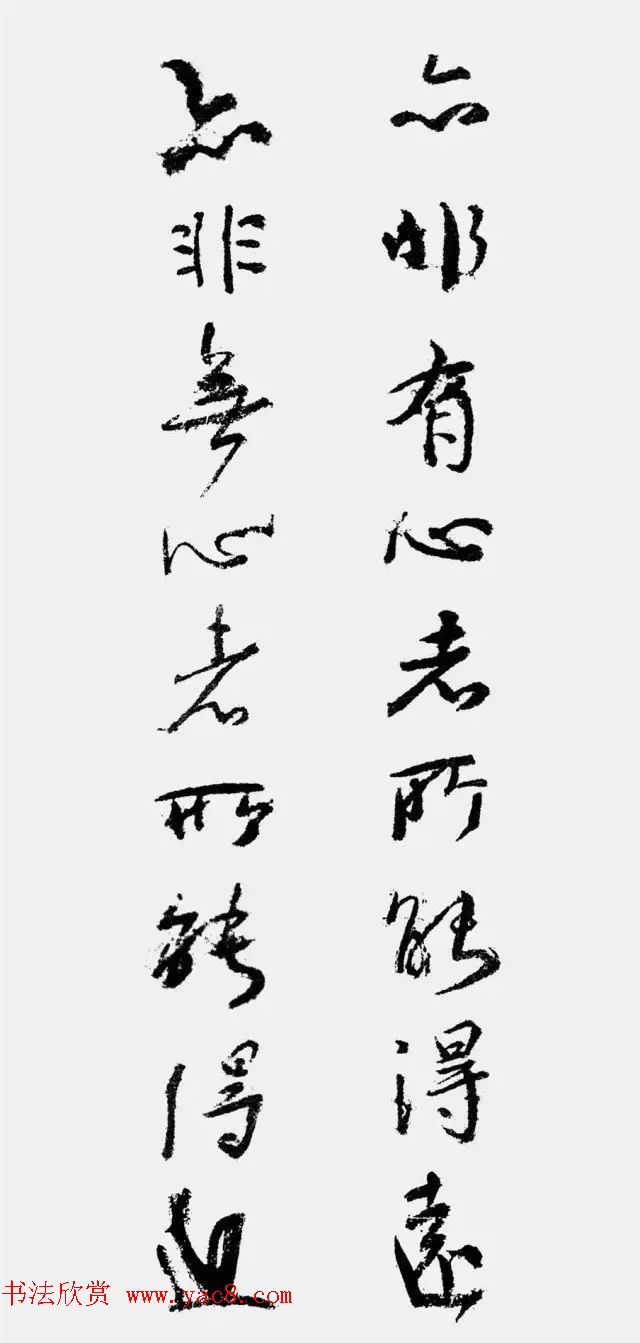 亦非有心者所能得遠
亦非無心者所能得近
书法欣赏 www.yac8.com